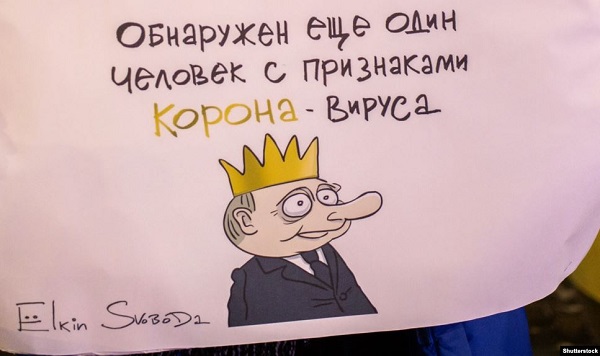 Обнаружен еще один
человек с признаками
корона - вируса
Ёlkin Svoboda
Shutterstock